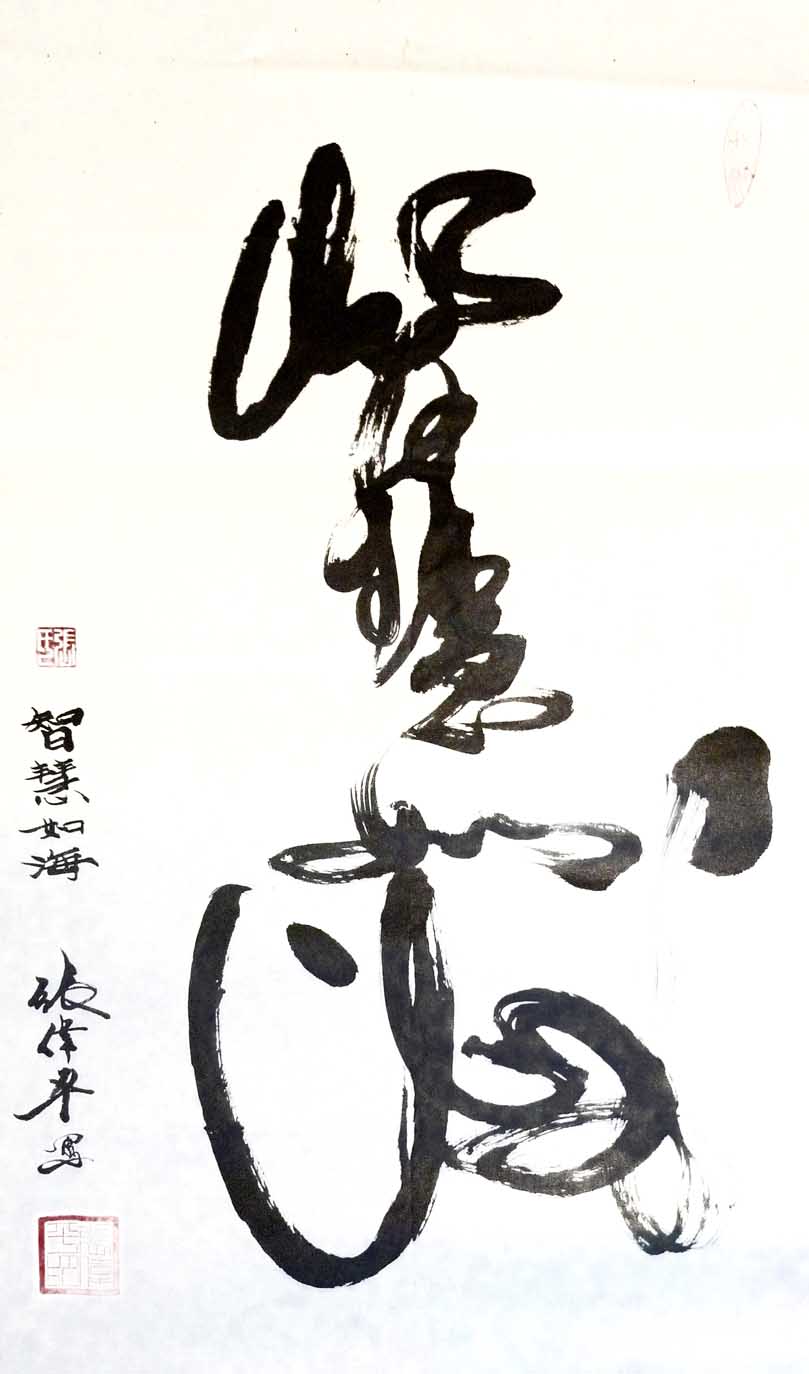 智慧如海
智慧如海
張偉平寫